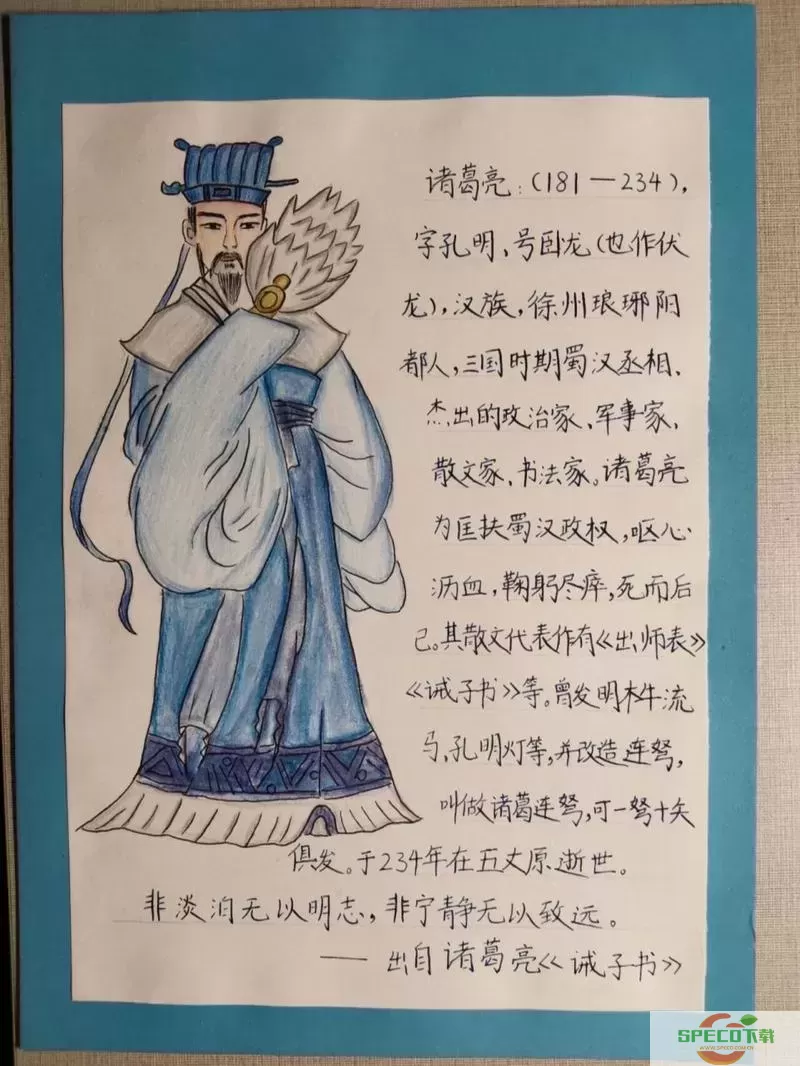 诸葛亮：(181—234)，
字孔明、号卧龙(也作伏
龙)，汉族，徐州琅琊阳
都人，三国时期蜀汉丞相、
杰出的政治家、军事家、
散文家、书法家。诸葛亮
为匡扶蜀汉政权，呕心
沥血，鞠躬尽瘁，死而后
已。其散文代表作有《出师表》
《诫子书》等。曾发明木牛流
马、孔明灯等，并改造连弩，
叫做诸葛连弩，可一弩十矢
俱发。于234年在五丈原逝世。
非淡泊无以明志，非宁静无以致远。
——出自诸葛亮《诫子书》
SPECO下载
WWW.SPECO.COM.CN